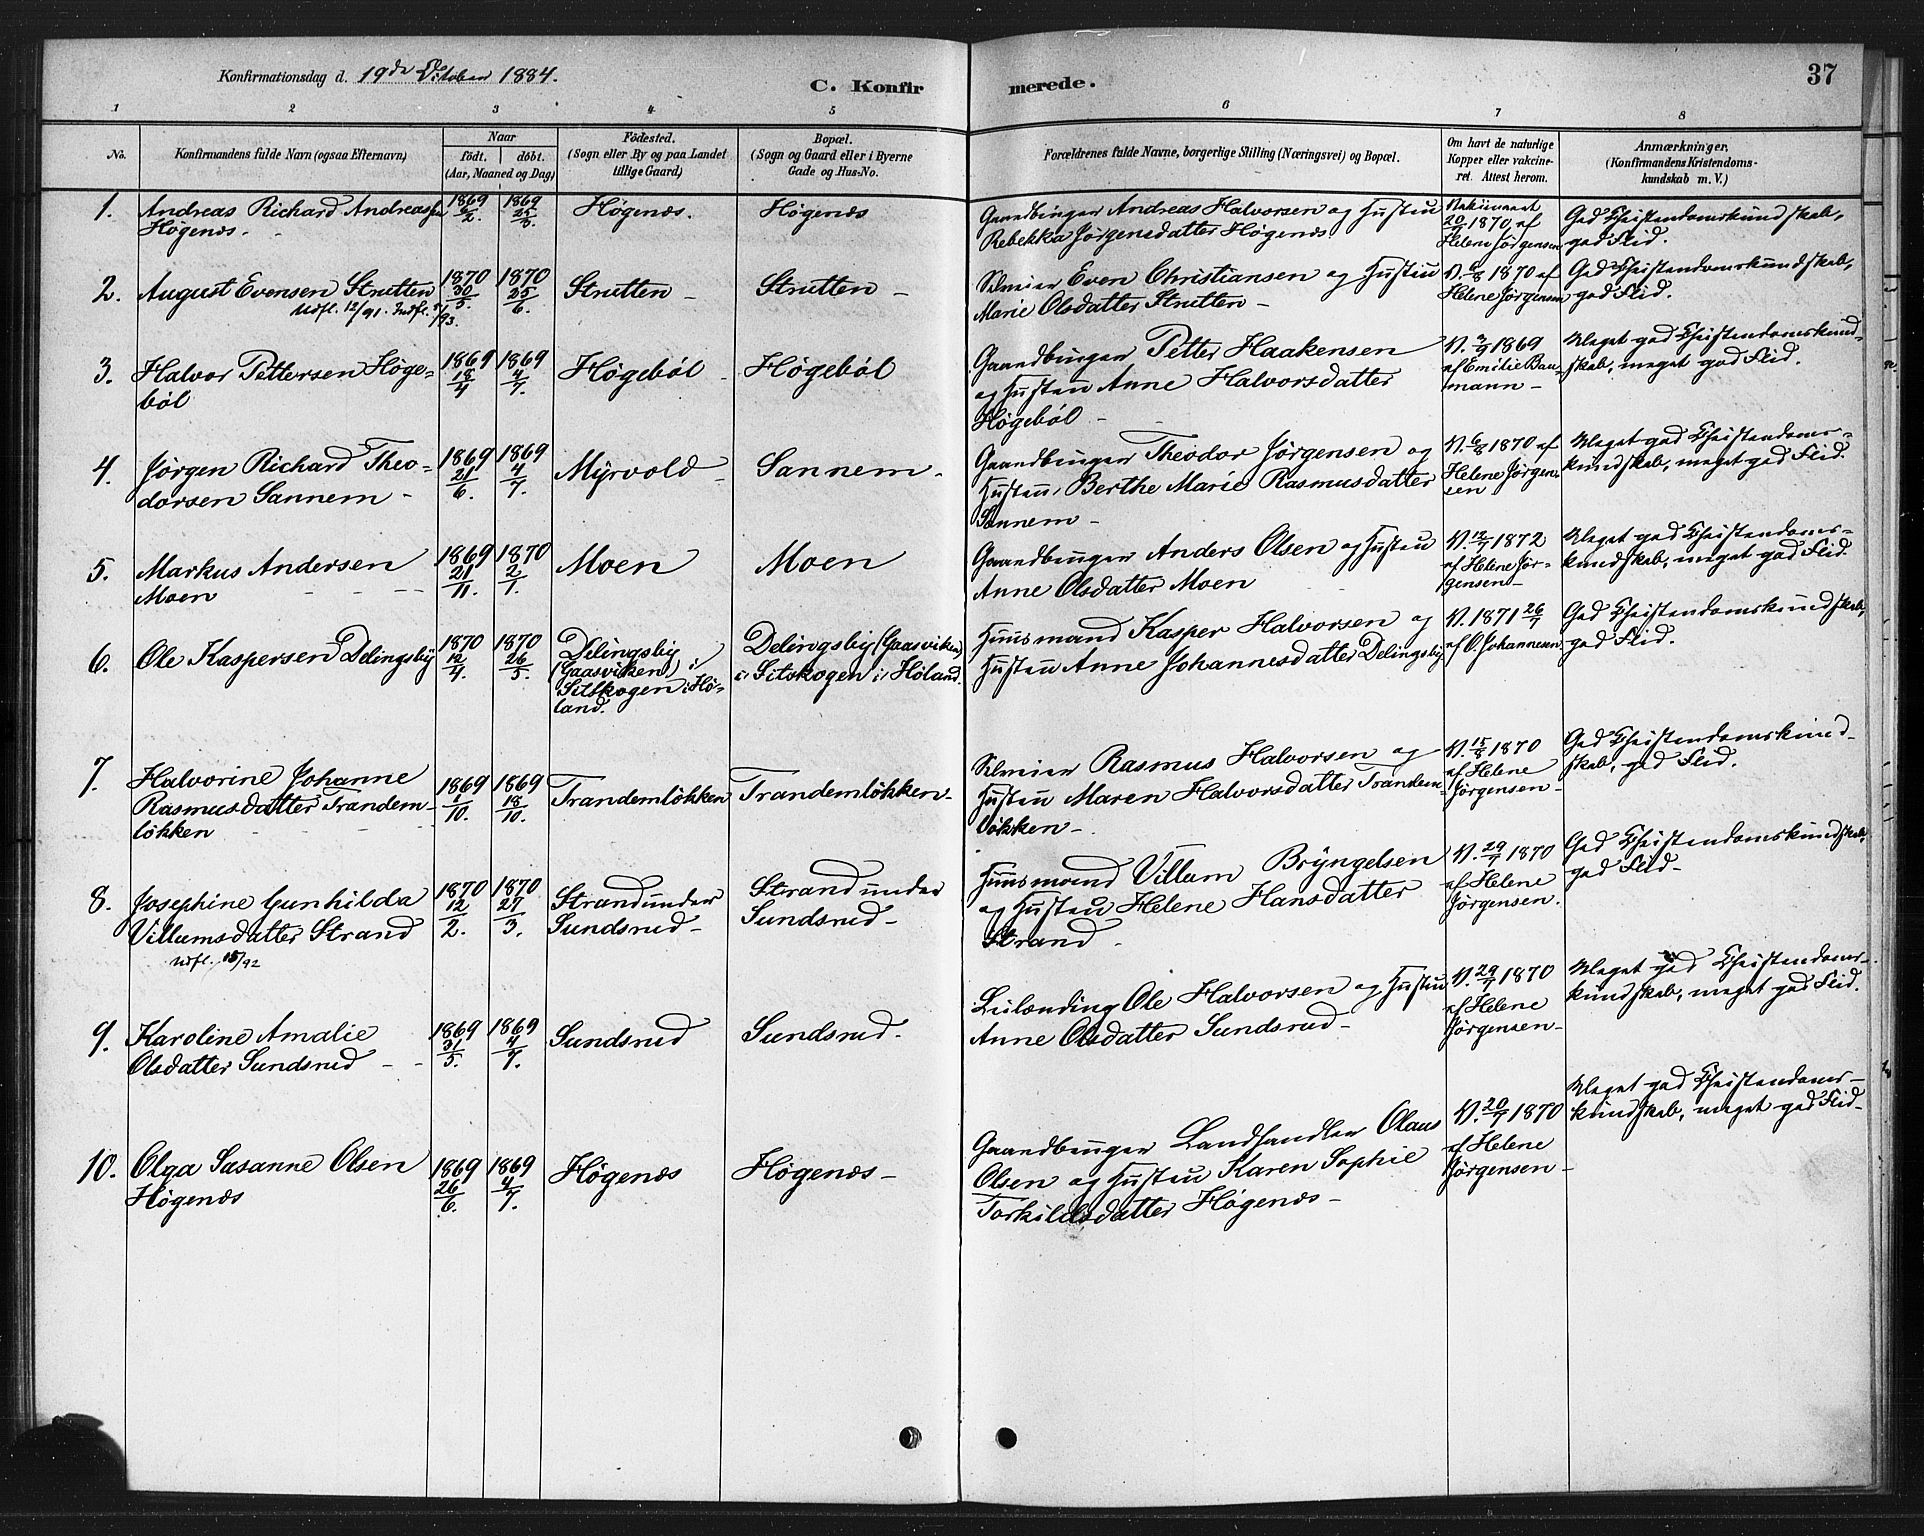 Konfirmationsdag d. 19de October 1884.
C. Konfirmerede.
37
1 2 3 4 5 6 7 8
No.
Konfirmandens fulde Navn (ogsaa Efternavn)
Naar
født. | döbt.
(Aar, Maaned og Dag)
Födested.
(Sogn eller By og paa Landet
tillige Gaard)
Bopæl.
(Sogn og Gaard eller i Byerne
Gade og Hus-No.
Forældrenes fulde Navne, borgerlige Stilling (Næringsvei) og Bopæl.
Om havt de naturlige
Kopper eller vakcine-
ret. Attest herom.
Anmærkninger.
(Konfirmandens Kristendoms-
kundskab m. V.)
1.
Andreas Richard Andreassen
Högenæs.
1869
6/2.
1869
25/3.
Högenæs.
Högenæs
Gaardbruger Andreas Halvorsen og Hustru
Rebekka Jörgensdatter Högenæs
Vakcineret
20/7 1870 af
Helene Jörgensen
God Christendomskundskab,
god Flid.
2.
August Evensen Strutten
Udfl. 12/91. Indfl. 5/93.
1870
30/5.
1870
25/6.
Strutten -
Strutten -
Selveier Even Christiansen og Hustru
Marie Olsdatter Strutten -
V. 6/8 1870 af
Helene Jörgensen
God Christendomskundskab,
god Flid.
3.
Halvor Pettersen Höge-
böl
1869
18/4
1869
4/7.
Högeböl -
Högeböl
Gaardbruger Petter Haakensen
og Hustru Anne Halvorsdatter
Högeböl -
V. 3/9 1869
af Emilie Bau-
mann -
Meget god Christendomskund-
skab, meget god Flid.
4.
Jörgen Richard Theo-
dorsen Sannem -
1869
21/6.
1869
4/7.
Myrvold -
Sannem -
Gaardbruger Theodor Jörgensen og
Hustru Berthe Marie Rasmusdatter
Sannem -
V. 6/8 1870 af
Helene Jörgen-
sen
Meget god Christendoms-
kundskab, meget god Flid.
5.
Markus Andersen
Moen - - -
1869
21/11.
1870
2/1.
Moen
Moen
Gaardbruger Anders Olsen og Hustru
Anne Olsdatter Moen
V. 12/7 1872
af Helene Jör-
gensen -
Meget god Christendoms-
kundskab, meget god Flid.
6.
Ole Kaspersen Delingsby
1870
12/4.
1870
26/5.
Delingsby
(Gaasviken) i
Sitskogen i Hö-
land.
Delingsby (Gaasviken)
i Sitskogen i Höland.
Huusmand Kasper Halvorsen og
Hustru Anne Johannesdatter Delingsby
V. 1871 26/7
af O. Johannesen
God Christendomskundskab,
god Flid.
7.
Halvorine Johanne
Rasmusdatter Trandem-
lökken - - -
1869
1/10.
1869
18/10.
Trandemlökken
Trandemlökken -
Selveier Rasmus Halvorsen og
Hustru Maren Halvorsdatter Trandem-
lökken -
V. 15/8 1870
af Helene
Jörgensen -
God Christendomskund-
skab, god Flid.
8.
Josephine Gunhilda
Villumsdatter Strand
Udfl. 15/92
1870
12/2.
1870
27/3.
Strand under
Sundsrud -
Strand under
Sundsrud -
Huusmand Villum Bryngelsen
og Hustru Helene Hansdatter
Strand -
V. 29/7 1870
af Helene
Jörgensen.
God Christendomskundskab,
god Flid -
9.
Karoline Amalie
Olsdatter Sundsrud - -
1869
31/5.
1869
4/7.
Sundsrud
Sundsrud -
Leilænding Ole Halvorsen og Hustru
Anne Olsdatter Sundsrud -
V. 29/7 1870
af Helene
Jörgensen -
Meget god Christendoms-
kundskab, meget god Flid.
10.
Olga Susanne Olsen
Högenæs
1869
26/6.
1869
4/7.
Högenæs
Högenæs -
Gaardbruger Landhandler Olaus
Olsen og Hustru Karen Sophie
Torkildsdatter Högenæs -
V. 20/7 1870
af Helene
Jörgensen -
Meget god Christendoms-
kundskab, meget god Flid -